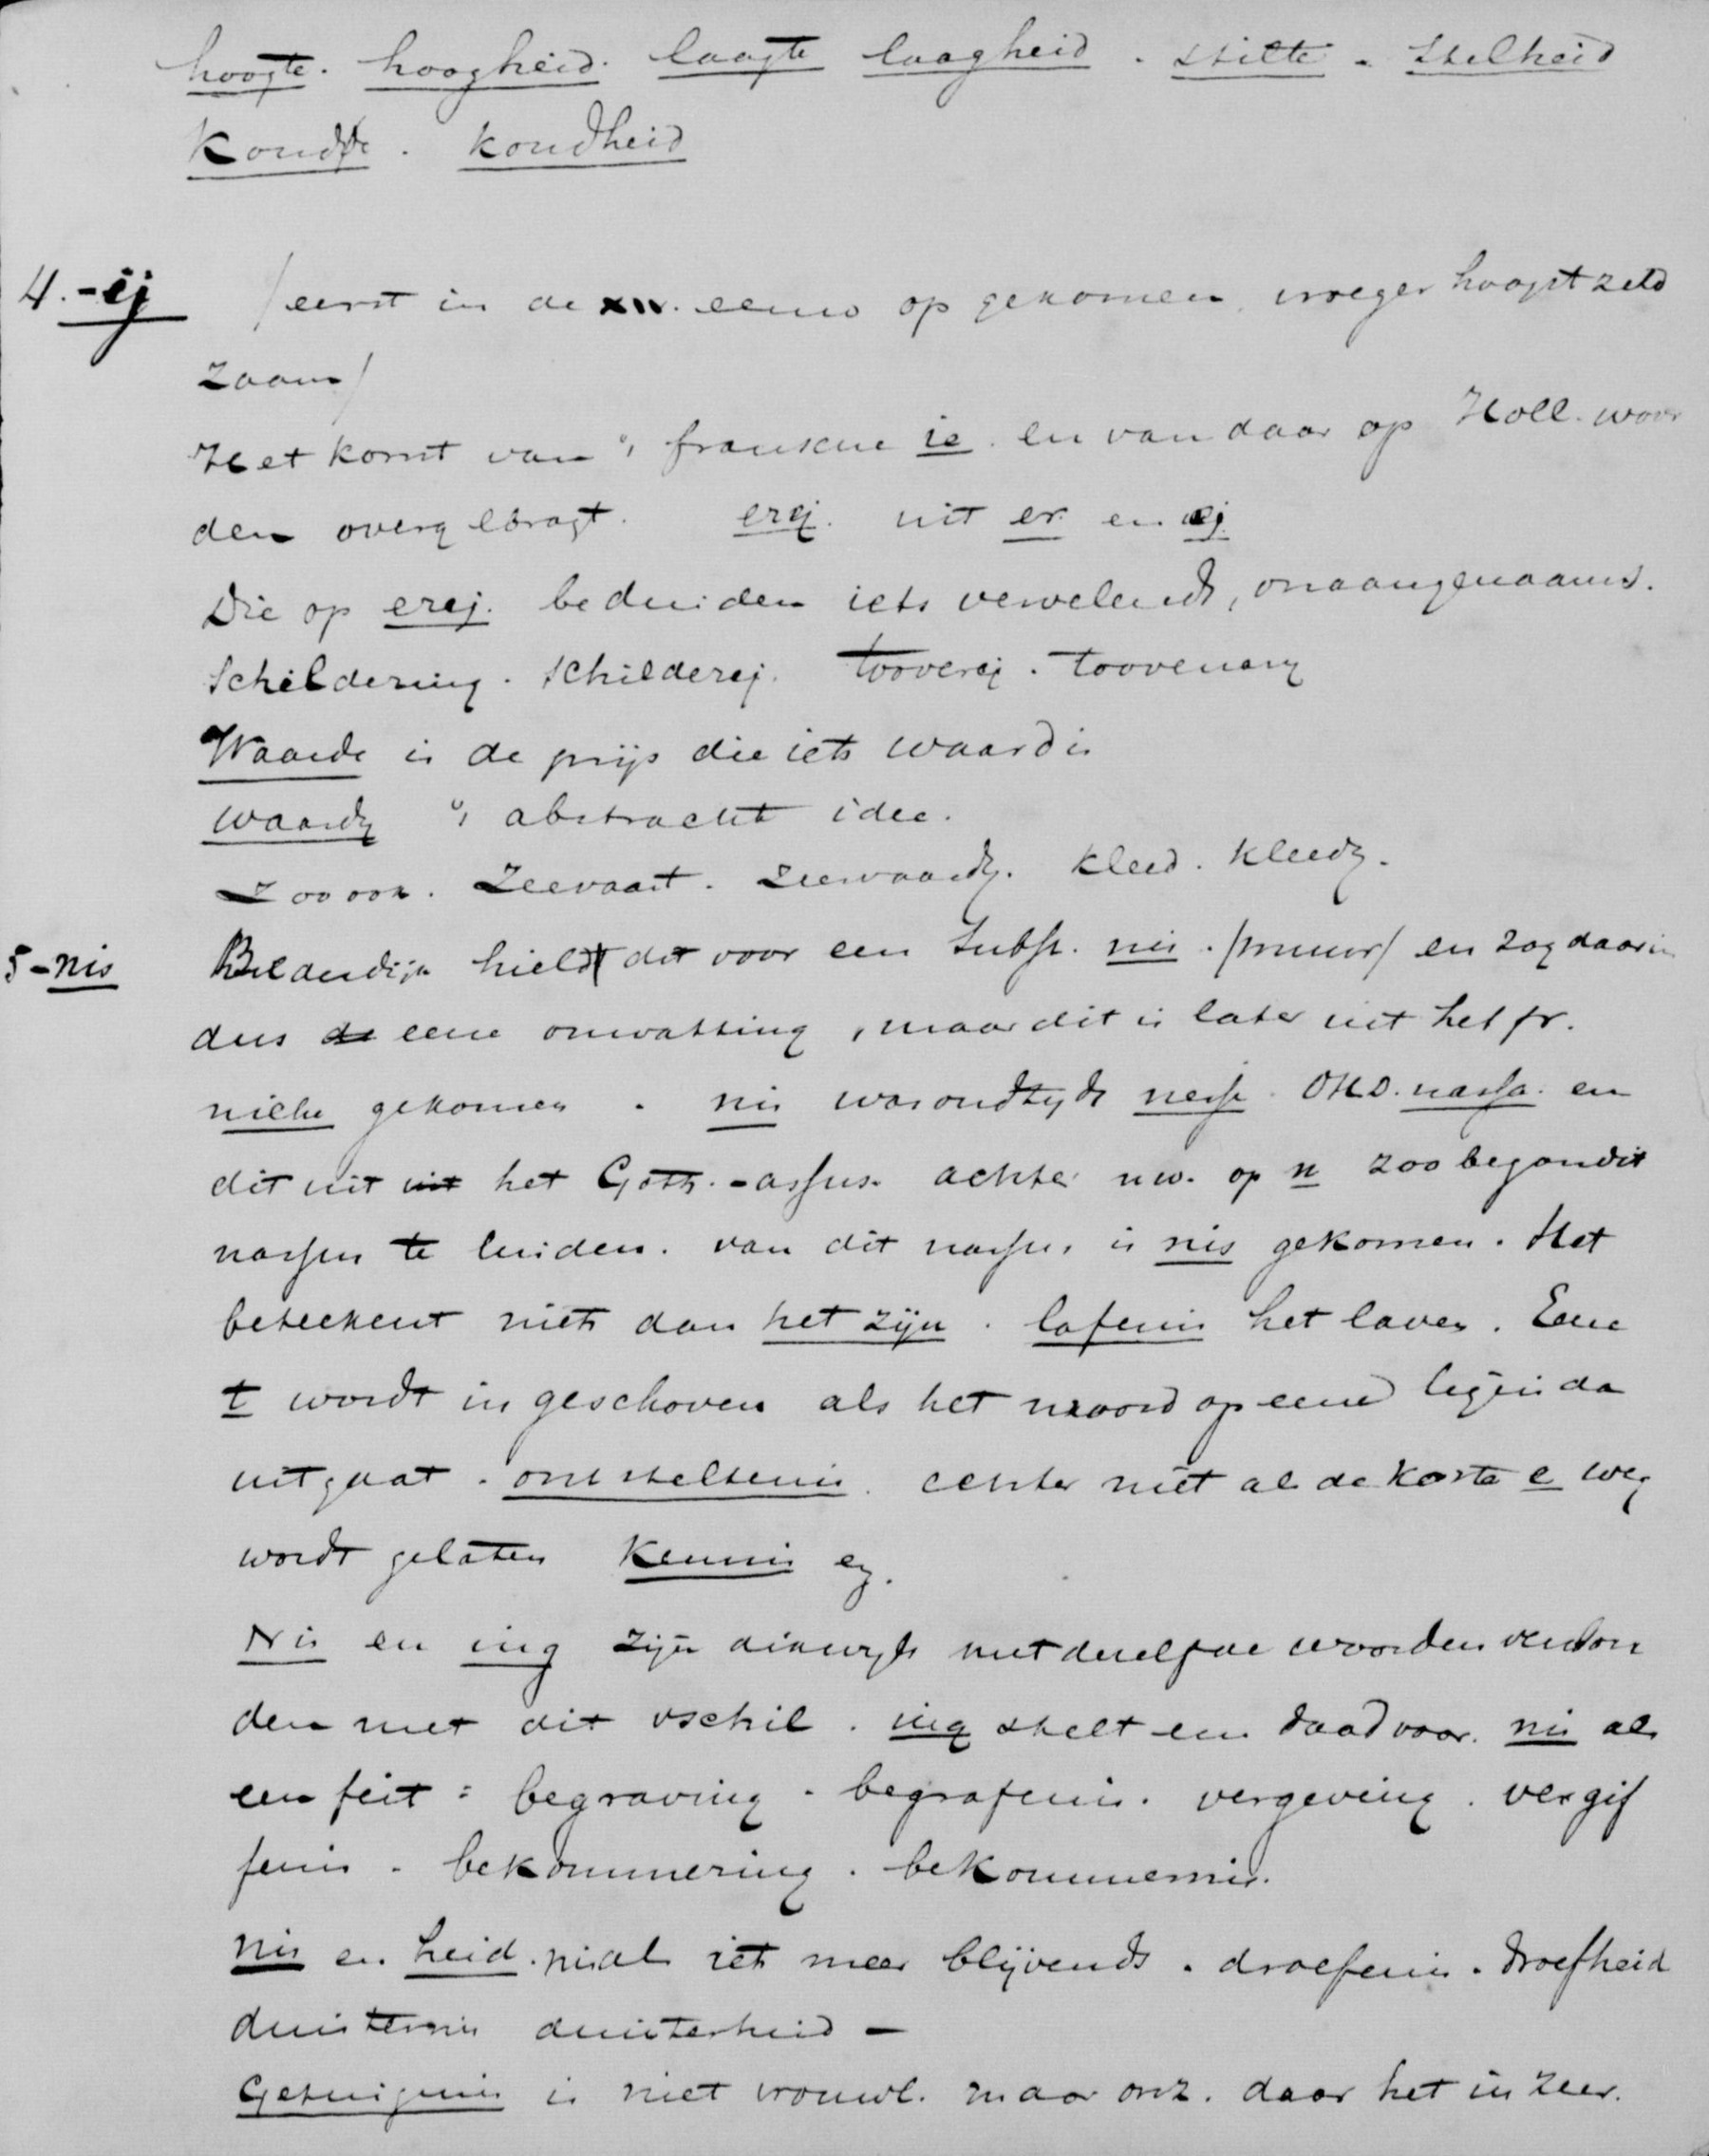 hoogte. hoogheid. laagte laagheid. stilte. stelheid
koudte. koudheid
4. -ij /eerst in de XIV. eeuw op gekomen, vroeger hoogst zeld
zaam/
Het komt van 't fransche ie en van daar op Holl. woor
den overgebragt. erij. uit er en ij
Die op erij. beduiden iets vervelends, onaangenaams.
Schildering. schilderij. tooverij. toovenarij
Waarde is de prijs die iets waard is
waardij 't abstracht idee.
Zoo ook. Zeevaart. zeevaardij. kleed. kleedij.
5 -nis Bilderdijk hield dit voor een subst. nis. /muur/ en zag daarin
dus de eene omvatting, maar dit is later uit het fr.
niche gekomen. nis was oudtijds nesse. OHD. nassa. en
dit uit uit het Goth. -assus. achter nw. op n zoo begon dit
nassus te luiden. van dit nassus is nis gekomen. Het
beteekent niets dan het zijn. lafenis het laven. Eene
t wordt ingeschoven als het woord op eene liquida
uitgaat. ontsteltenis. echter niet als de korte e weg
wordt gelaten Kennis ez.
Nis en ing zijn dikwijls met dezelfde woorden verbon
den met dit vschil. ing stelt een daad voor. nis als
een feit: begraving. begrafenis. vergeving. vergif
fenis. bekommering. bekommernis.
nis en heid. nis als iets meer blijvends. droefenis. droefheid
duisternis duisterheid —
Getuigenis is niet vrouwl. maar onz. daar het in zeer.